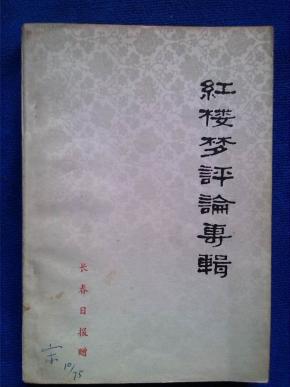 紅楼梦評論專輯
长春日报赠
宋
10/75